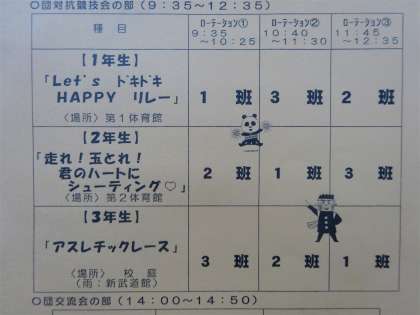 ○団対抗競技会の部(9:35~12:35)
種 目
ﾛｰﾃｰｼｮﾝ① 9:35 ~10:25
ﾛｰﾃｰｼｮﾝ② 10:40 ~11:30
ﾛｰﾃｰｼｮﾝ③ 11:45 ~12:35
【1年生】
「Let's ドキドキ
HAPPY リレー」
〈場所〉第1体育館
1 班 3 班 2 班
【2年生】
「走れ!玉とれ!
君のハートに
シューティング♡」
〈場所〉第2体育館
2 班 1 班 3 班
【3年生】
「アスレチックレース」
〈場所〉 校 庭
(雨:新武道館)
3 班 2 班 1 班
○団交流会の部(14:00~14:50)